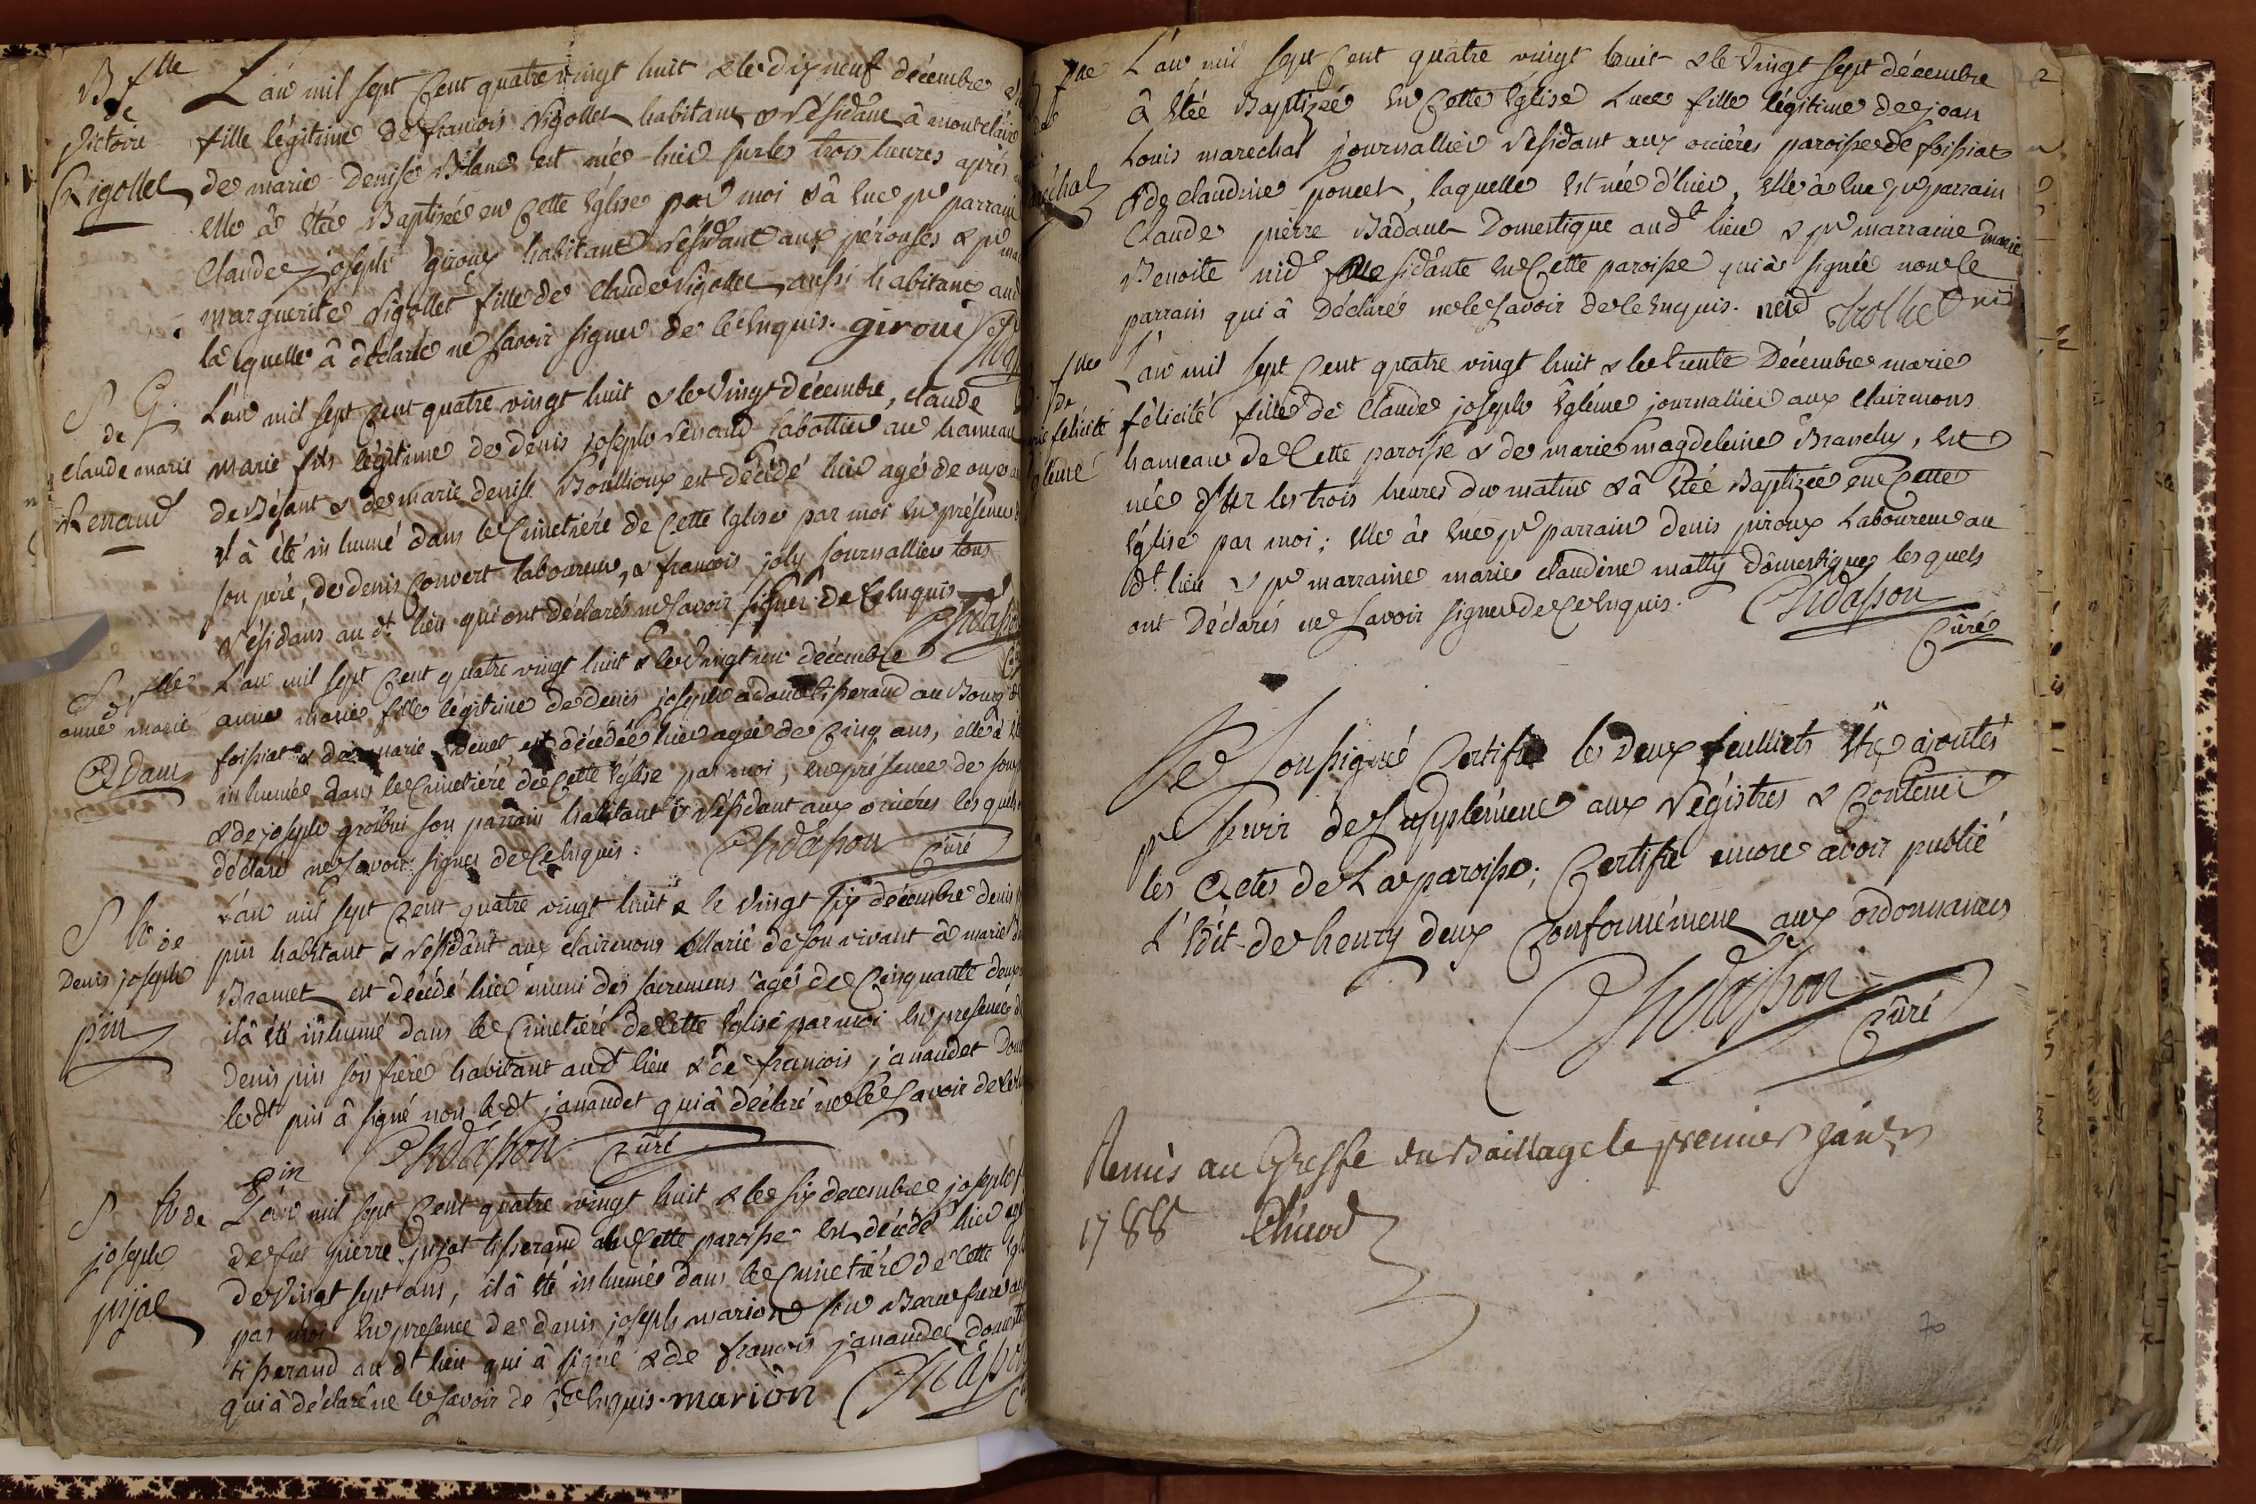 B flle
de
Victoire
Rigollet
L'an mil sept Cent quatre vingt huit & le dix neuf décembre
fille légitime de francois Rigollet habitant & Résidant à montclair
de marie Denise Blanc est née hier sur les trois heures après
elle â étée Baptizée en Cette Eglise par moi & â eue pr parrain
Claude joseph giroux habitant Résidant aux pérouses & pr
marguerite Rigollet fille de Claude Rigollet aussi habitant aud
laquelle â déclaré ne savoir signer de Ce Enquis. giroui
S G.
de
Claude marie
Renaud
L'an mil sept Cent quatre vingt huit & le Vingt décembre, claude
marie fils légitime de denis joseph Renaud Sabottier au hameau
de Bésant & de marie denise Boullioux est décédé hier agé de onze
il â été inhumé dans le Cimetiére de Cette Eglise par moi En présence
son pere, de denis Convert laboureur, & francois joly journallier tous
Résidans au dt lieu qui ont déclarés ne Savoir signer de Ce Enquis
S flle
de
anne marie
Adam
L'an mil sept Cent quatre vingt huit & le Vingt un décembre
anne marie fille légitime de denis joseph adam tisserand au Bourg de
foissiat & de marie venet est décédée hier agée de Cinq ans, elle â
inhumée dans le Cimetiére de Cette Eglise par moi, en présence de son
& de joseph groibui son parrain habitant & Résidant aux oriéres les quels
déclaré ne Savoir signer de Ce Enquis. Chdasson Curé
S h de
Denis joseph
pin
L'an mil sept Cent quatre vingt huit & le Vingt six décembre denis
pin habitant & Résidant aux clairmons Marié de son vivant â marie
Bramet est décédé hier muni des sacremens agé de Cinquante deux
il â été inhumé dans le Cimetiére de Cette Eglise par moi En présence
denis pin son frére habitant au dt lieu & de francois janaudet Dom
le dt pin â signé non le dt janaudet qui â déclaré ne le Savoir de Ce
pin Chdasson Curé
S h de
joseph
pujat
L'an mil sept Cent quatre vingt huit & le six decembre joseph
de fut pierre pujat tisserand en Cette paroisse est décédé hier
de Vingt sept ans, il â été inhumé dans le Cimetiére de Cette
par moi En presence de denis joseph marion son Beau frere
tisserand au dt lieu qui â signé & de francois janaudet domestique
qui â déclaré ne le Savoir de Ce Enquis. marion Chdasson
L'an mil sept Cent quatre vingt huit & le Vingt sept décembre
â étée Baptizée en Cette Eglise Luce fille légitime de jean
Louis marechal journallier Résidant aux oriéres paroisse de foissiat
& de claudine poncet, laquelle est née d'hier, elle â eue pr parrain
Claude pierre Badaut Domestique au dt lieu & pr marraine marie
Benoite nid Résidante en Cette paroisse qui â signée non le
parrain qui â Déclaré ne le Savoir de Ce Enquis. nid
félicité
L'an mil sept Cent quatre vingt huit & le trente Décembre marie
félicité fille de Claude joseph Egléme journallier aux Clairmons
hameau de Cette paroisse & de marie magdeleine Branchy, est
née hier les trois heures du matin & â étée Baptizée en Cette
Eglise par moi; elle â eue pr parrain denis piroux Laboureur au
dt lieu & pr marraine marie claudine matty domestique les quels
ont Déclarés ne Savoir signer de Ce Enquis. Chdasson
Curé
Je Soussigné Certifie les deux feulliets être ajoutés
pr Servir de Supplément aux Régistres & Contenir
les Actes de La paroisse; Certifie encore avoir publié
L'édit de henry deux Conformément aux ordonnances
Chdasson
Curé
Remis au Greffe du Baillage le premier janer
1788
2
70